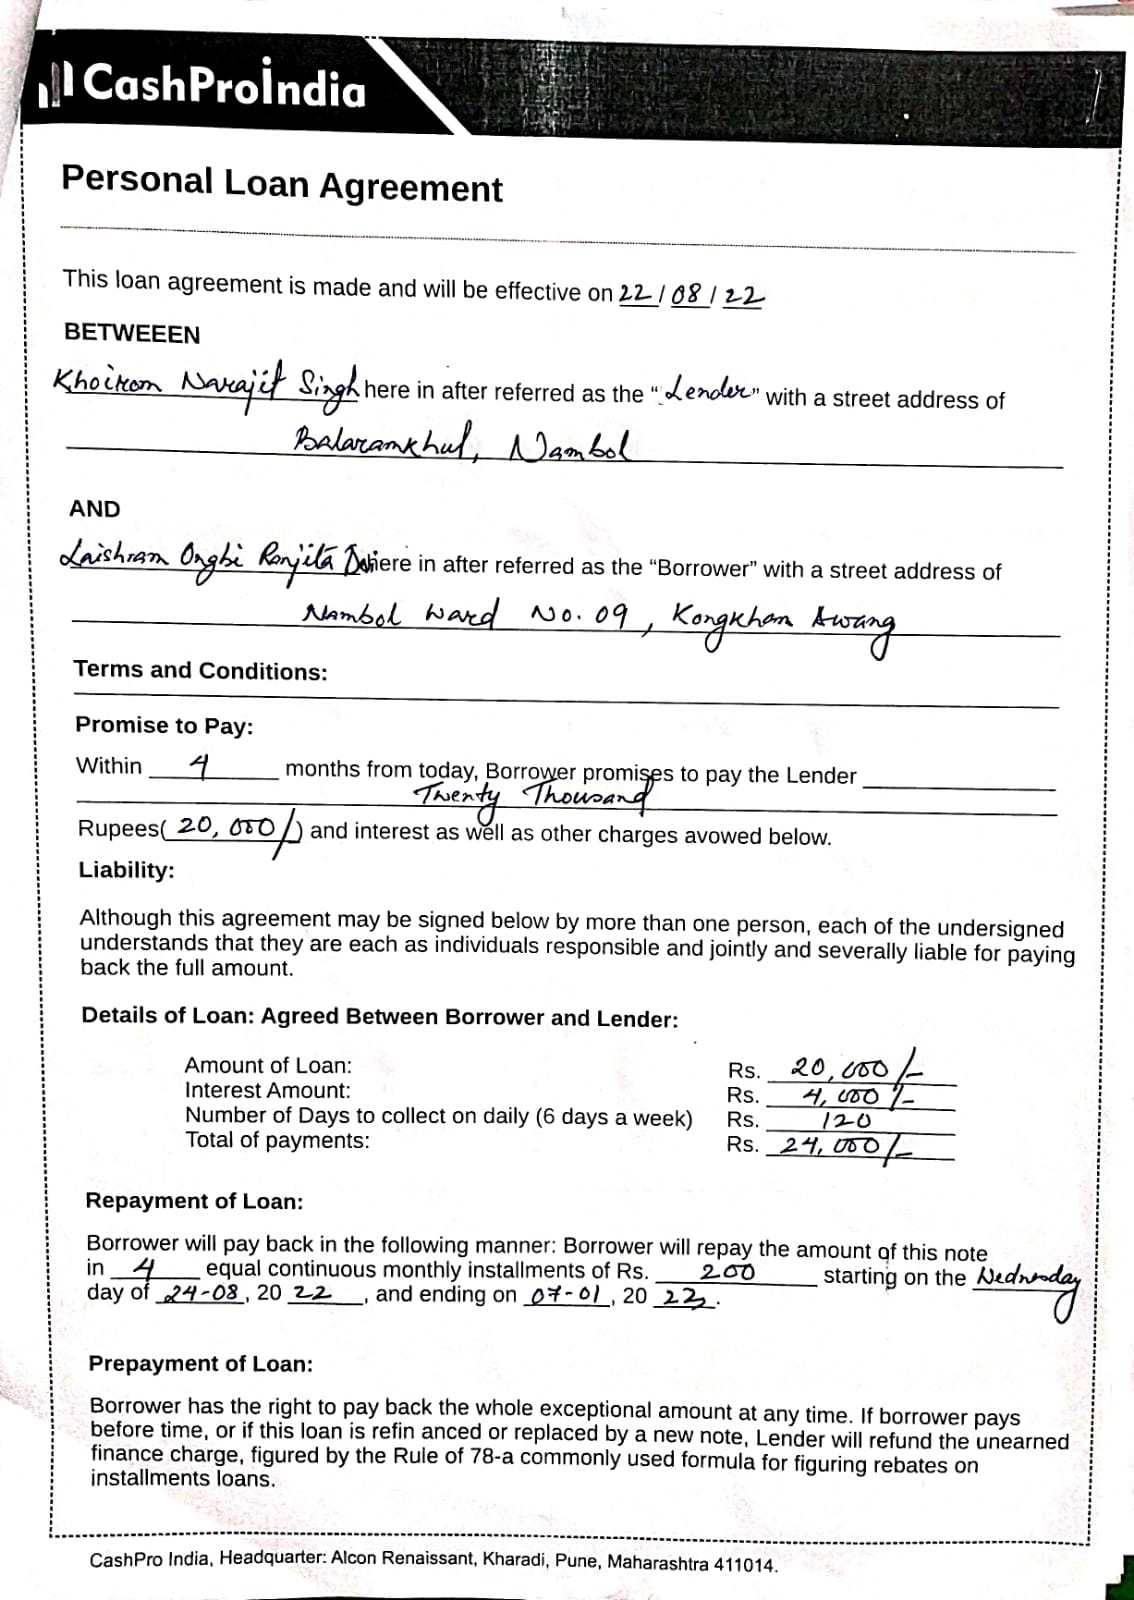 CashProIndia
Personal Loan Agreement
This loan agreement is made and will be effective on 22/08/22
BETWEEEN
Khoirom Narajit Singh here in after referred as the "Lender" with a street address of
Balaramkhul, Nambol
AND
Laishram Ongbi Ranjita Devi here in after referred as the "Borrower" with a street address of
Nambol Ward No. 09, Kongkham Awang
Terms and Conditions:
Promise to Pay:
Within 4 months from today, Borrower promises to pay the Lender
Twenty Thousand
Rupees( 20,000/-) and interest as well as other charges avowed below.
Liability:
Although this agreement may be signed below by more than one person, each of the undersigned
understands that they are each as individuals responsible and jointly and severally liable for paying
back the full amount.
Details of Loan: Agreed Between Borrower and Lender:
Amount of Loan: Rs. 20,000/-
Interest Amount: Rs. 4,000/-
Number of Days to collect on daily (6 days a week) Rs. 120
Total of payments: Rs. 24,000/-
Repayment of Loan:
Borrower will pay back in the following manner: Borrower will repay the amount of this note
in 4 equal continuous monthly installments of Rs. 200 starting on the Wednesday
day of 24-08, 20 22, and ending on 07-01, 20 23.
Prepayment of Loan:
Borrower has the right to pay back the whole exceptional amount at any time. If borrower pays
before time, or if this loan is refin anced or replaced by a new note, Lender will refund the unearned
finance charge, figured by the Rule of 78-a commonly used formula for figuring rebates on
installments loans.
CashPro India, Headquarter: Alcon Renaissant, Kharadi, Pune, Maharashtra 411014.